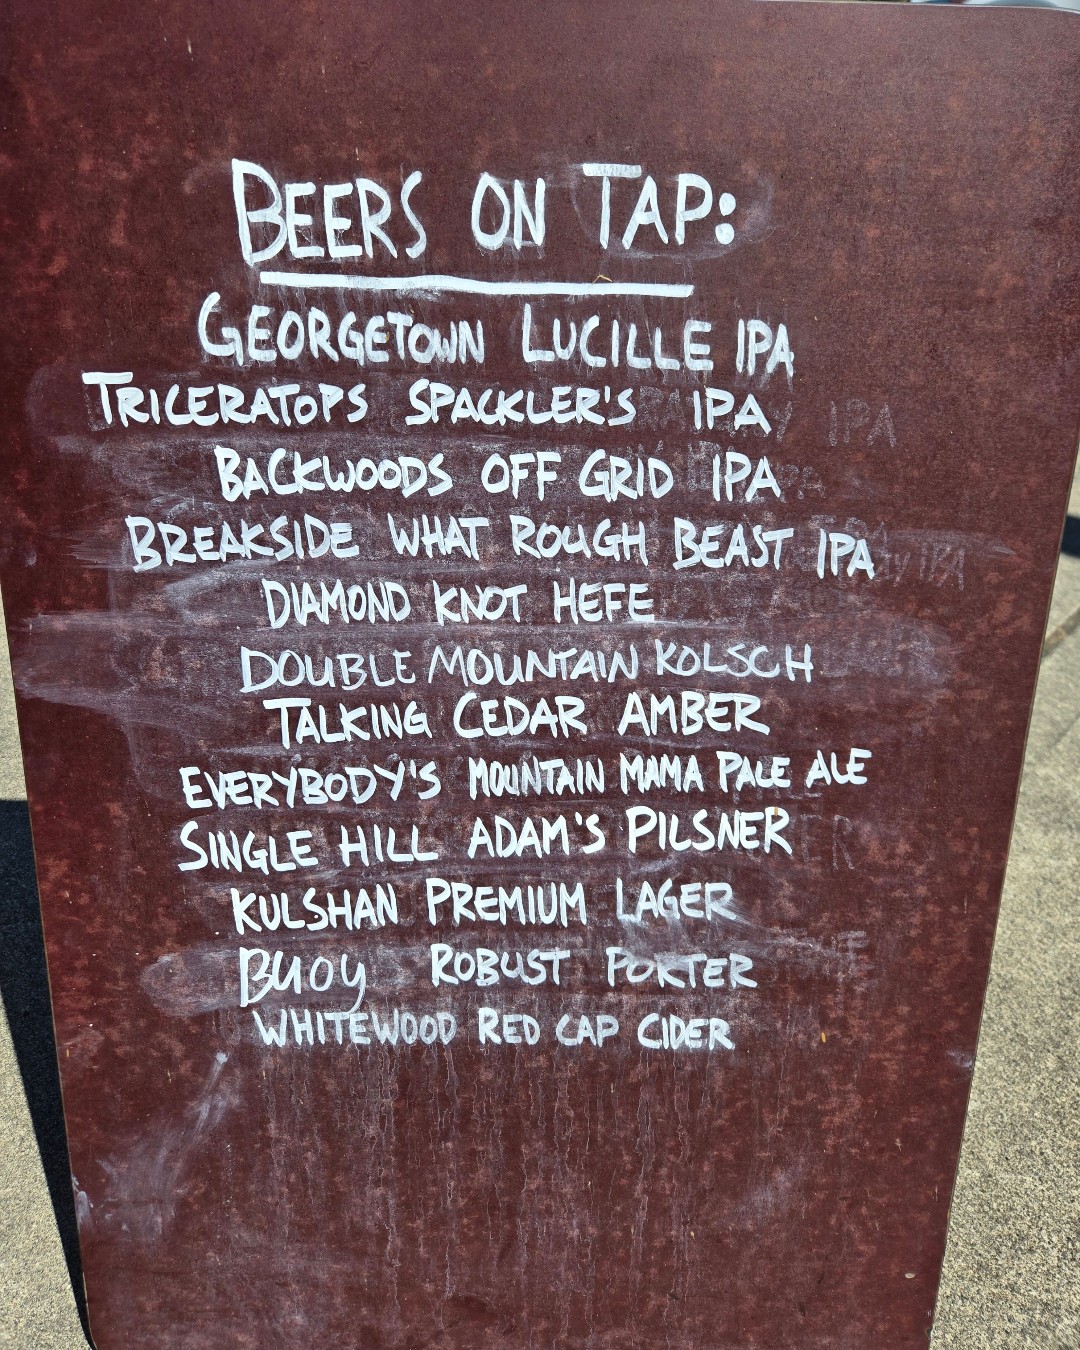 BEERS ON TAP:
GEORGETOWN LUCILLE IPA
TRICERATOPS SPACKLER'S IPA
BACKWOODS OFF GRID IPA
BREAKSIDE WHAT ROUGH BEAST IPA
DIAMOND KNOT HEFE
DOUBLE MOUNTAIN KOLSCH
TALKING CEDAR AMBER
EVERYBODY'S MOUNTAIN MAMA PALE ALE
SINGLE HILL ADAM'S PILSNER
KULSHAN PREMIUM LAGER
BUOY ROBUST PORTER
WHITEWOOD RED CAP CIDER